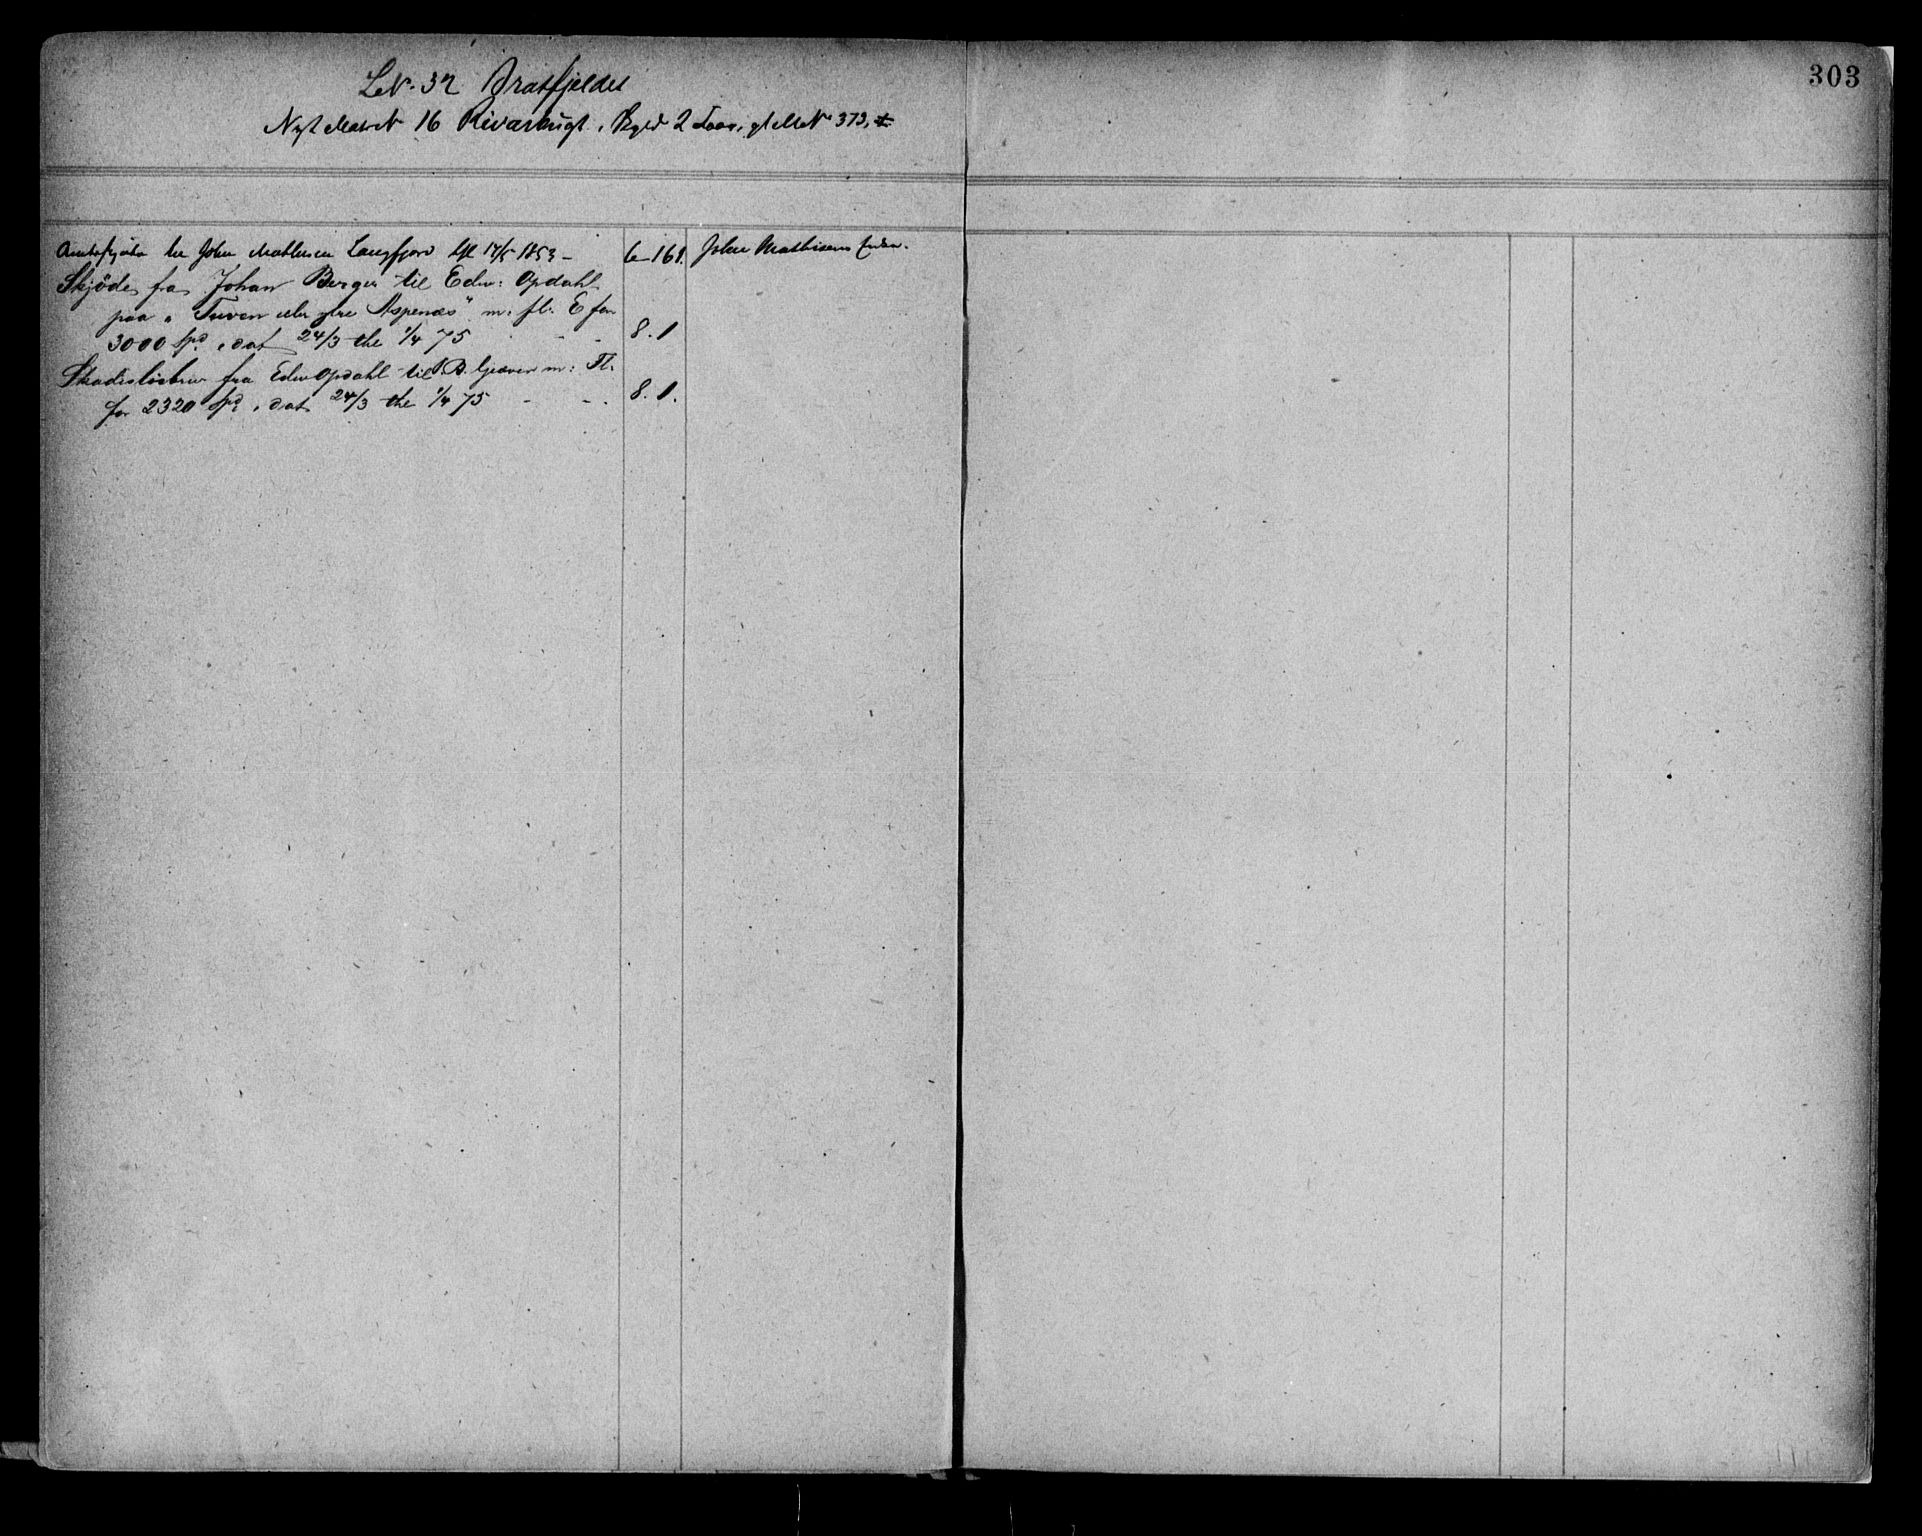 303
L.N. 32 Bratfjeldet
Nyt Matr N 16 Rivarbugt, Bgld 2 , gl M N 373,
Amtsskjøde til John Mathisen Langfjord tgl 17/5 1853 - 6-161. John Mathisens
Skjöde fra Johan Berger til Edw: Opdahl
paa "Tuven eller ytre Aspenæs" m: fl: E for
3000 Spd, dat 24/3 thl 1/4 75 - - 8.1
Skadeslösbrev fra Edw Opdahl til B. Gjæver m: Fl.
for 2320 Spd, dat 24/3 thl 1/4 75 - - - 8.1.